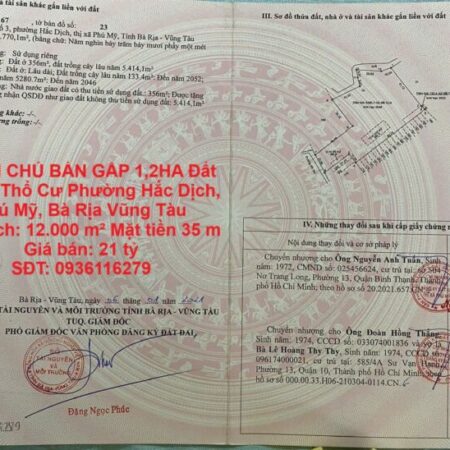 và tài sản khác gắn liền với đất
67 , tờ bản đồ số: 23
3, phường Hắc Dịch, thị xã Phú Mỹ, Tỉnh Bà Rịa - Vũng Tàu
.770,1m², (bằng chữ: Năm nghìn bảy trăm bảy mươi phẩy một mét
Sử dụng riêng
Đất ở 356m², đất trồng cây lâu năm 5.414,1m²
Đất ở: Lâu dài; Đất trồng cây lâu năm 133.4m²: Đến 2052;
năm 5280.7m²: Đến 2046
Nhà nước giao đất có thu tiền sử dụng đất: 356m²; Được tặng
nhận QSDĐ như giao đất không thu tiền sử dụng đất: 5.414,1m²
khác: -/-
trồng: -/-
CHỦ BÁN GẤP 1,2HA Đất
Thổ Cư Phường Hắc Dịch,
Mỹ, Bà Rịa Vũng Tàu
12.000 m² Mặt tiền 35 m
Giá bán: 21 tỷ
SĐT: 0936116279
Bà Rịa - Vũng Tàu, ngày
TÀI NGUYÊN VÀ MÔI TRƯỜNG TỈNH BÀ RỊA - VŨNG TÀU
TUQ. GIÁM ĐỐC
PHÓ GIÁM ĐỐC VĂN PHÒNG ĐĂNG KÝ ĐẤT ĐAI
TÀI NGUYÊN
VÀ
MÔI TRƯỜNG
Đặng Ngọc Phúc
III. Sơ đồ thửa đất, nhà ở và tài sản khác gắn liền với đất
IV. Những thay đổi sau khi cấp giấy chứng
Nội dung thay đổi và cơ sở pháp lý
Chuyển nhượng cho Ông Nguyễn Anh Tuấn, Sinh
năm: 1972, CMND số: 025456624, cư trú tại:
Nơ Trang Long, Phường 13, Quận Bình Thạnh, Thành
phố Hồ Chí Minh; theo hồ sơ số
Chuyển nhượng cho Ông Đoàn Hồng Thắng,
Sinh năm: 1974, CCCD số: 033074001836 và
Bà Lê Hoàng Thy Thy, Sinh năm: 1974, CCCD số:
096174000021, cư trú tại: 585/4A Sư Vạn Hạnh,
Phường 13, Quận 10, Thành phố Hồ Chí Minh; theo
hồ sơ số 000.00.33.H06-210304-0114.CN